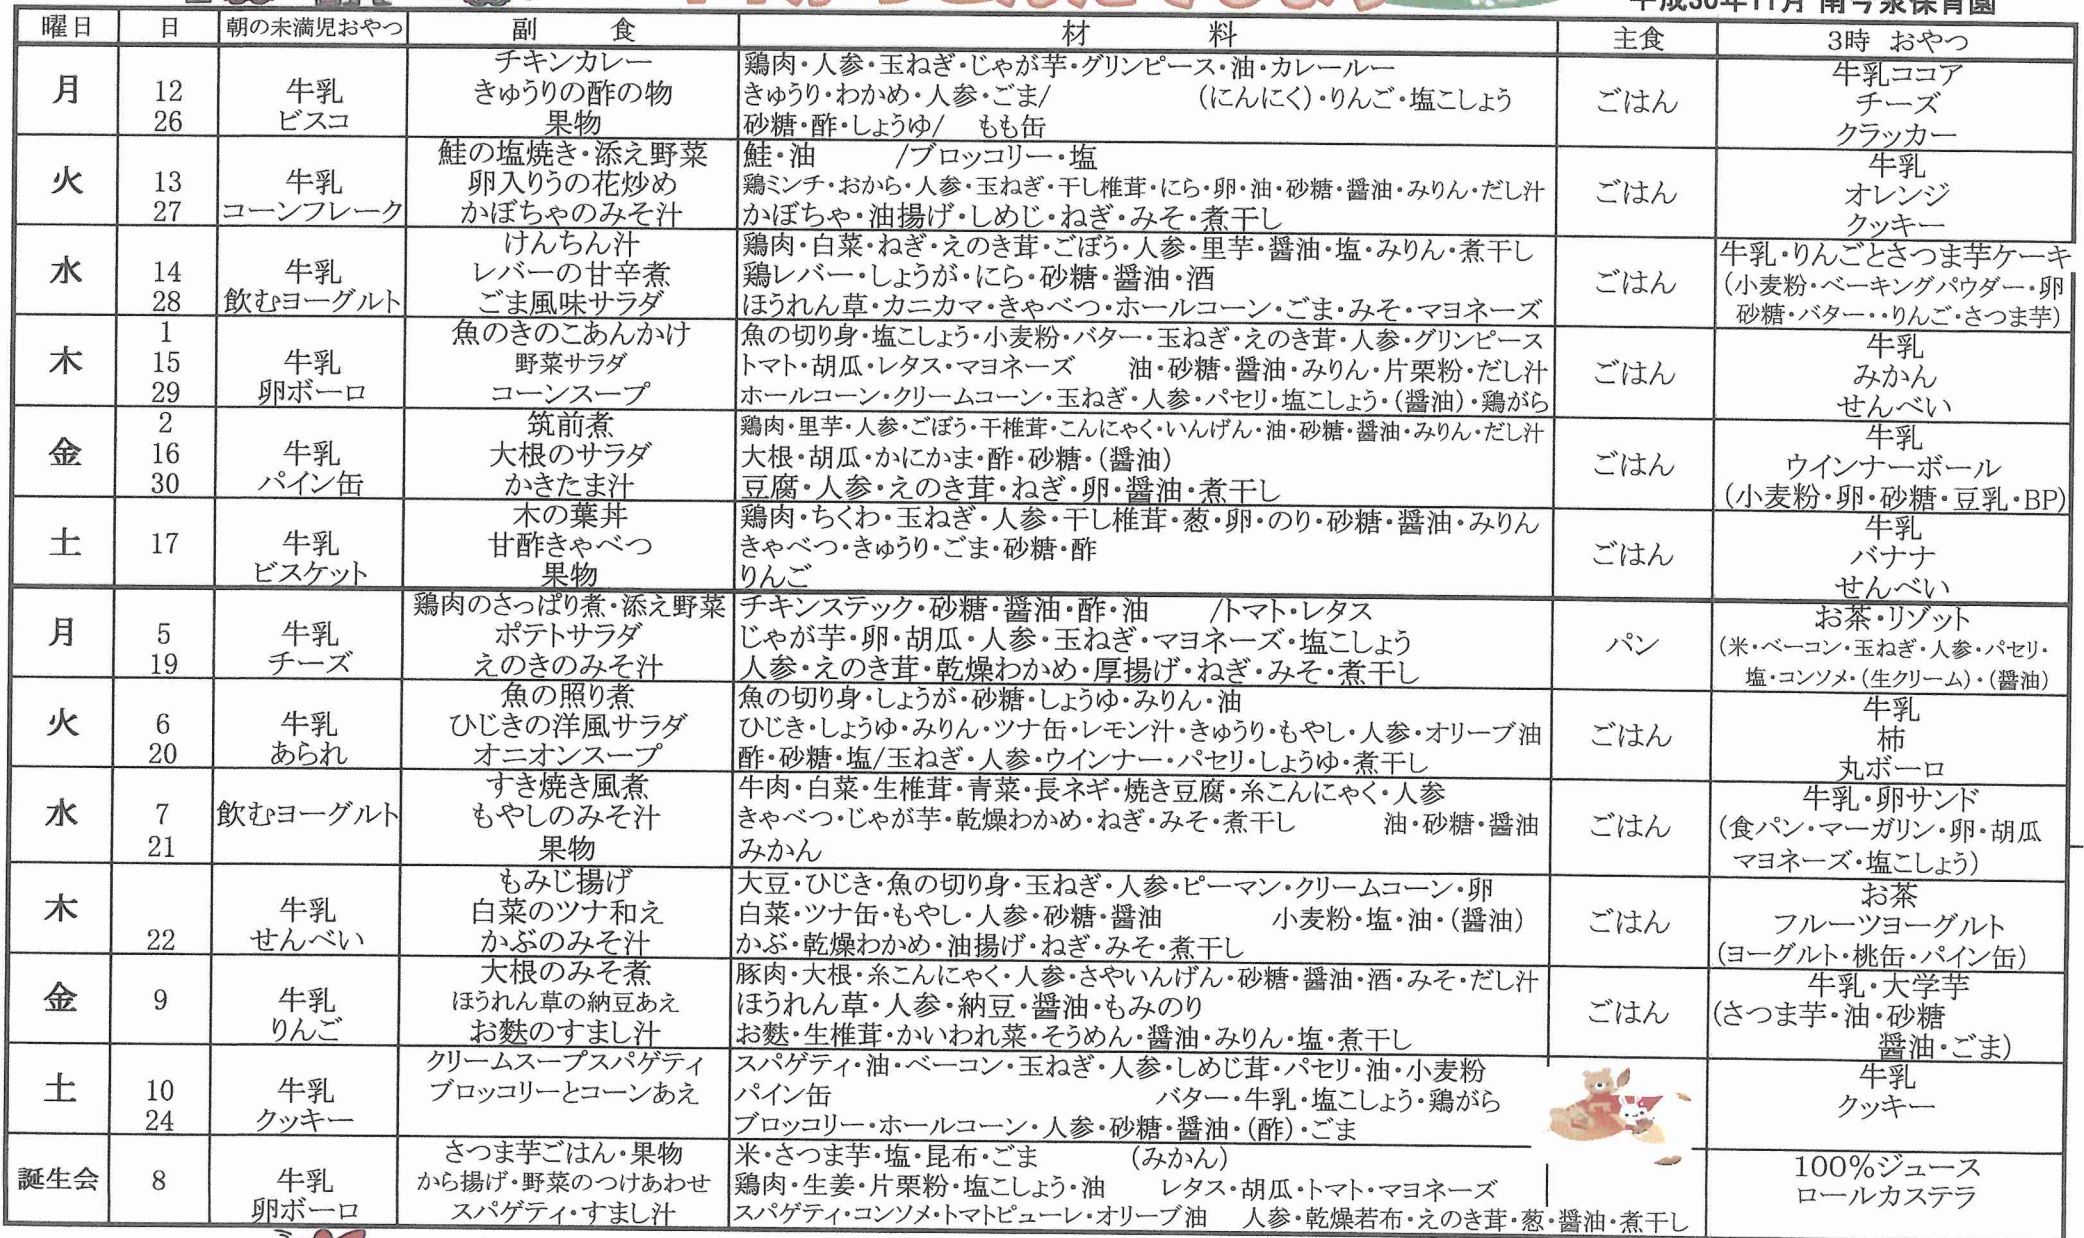 平成30年11月 南今泉保育園
曜日 日 朝の未満児おやつ 副 食 材 料 主食 3時 おやつ
月
12
26
牛乳
ビスコ
チキンカレー
きゅうりの酢の物
果物
鶏肉・人参・玉ねぎ・じゃが芋・グリンピース・油・カレールー
きゅうり・わかめ・人参・ごま/ (にんにく)・りんご・塩こしょう
砂糖・酢・しょうゆ/ もも缶
ごはん
牛乳ココア
チーズ
クラッカー
火
13
27
牛乳
コーンフレーク
鮭の塩焼き・添え野菜
卵入りうの花炒め
かぼちゃのみそ汁
鮭・油 /ブロッコリー・塩
鶏ミンチ・おから・人参・玉ねぎ・干し椎茸・にら・卵・油・砂糖・醤油・みりん・だし汁
かぼちゃ・油揚げ・しめじ・ねぎ・みそ・煮干し
ごはん
牛乳
オレンジ
クッキー
水
14
28
牛乳
飲むヨーグルト
けんちん汁
レバーの甘辛煮
ごま風味サラダ
鶏肉・白菜・ねぎ・えのき茸・ごぼう・人参・里芋・醤油・塩・みりん・煮干し
鶏レバー・しょうが・にら・砂糖・醤油・酒
ほうれん草・カニカマ・きゃべつ・ホールコーン・ごま・みそ・マヨネーズ
ごはん
牛乳・りんごとさつま芋ケーキ
(小麦粉・ベーキングパウダー・卵
砂糖・バター・・りんご・さつま芋)
木
1
15
29
牛乳
卵ボーロ
魚のきのこあんかけ
野菜サラダ
コーンスープ
魚の切り身・塩こしょう・小麦粉・バター・玉ねぎ・えのき茸・人参・グリンピース
トマト・胡瓜・レタス・マヨネーズ 油・砂糖・醤油・みりん・片栗粉・だし汁
ホールコーン・クリームコーン・玉ねぎ・人参・パセリ・塩こしょう・(醤油)・鶏がら
ごはん
牛乳
みかん
せんべい
金
2
16
30
牛乳
パイン缶
筑前煮
大根のサラダ
かきたま汁
鶏肉・里芋・人参・ごぼう・干椎茸・こんにゃく・いんげん・油・砂糖・醤油・みりん・だし汁
大根・胡瓜・かにかま・酢・砂糖・(醤油)
豆腐・人参・えのき茸・ねぎ・卵・醤油・煮干し
ごはん
牛乳
ウインナーボール
(小麦粉・卵・砂糖・豆乳・BP)
土
17
牛乳
ビスケット
木の葉丼
甘酢きゃべつ
果物
鶏肉・ちくわ・玉ねぎ・人参・干し椎茸・葱・卵・のり・砂糖・醤油・みりん
きゃべつ・きゅうり・ごま・砂糖・酢
りんご
ごはん
牛乳
バナナ
せんべい
月
5
19
牛乳
チーズ
鶏肉のさっぱり煮・添え野菜
ポテトサラダ
えのきのみそ汁
チキンステック・砂糖・醤油・酢・油 /トマト・レタス
じゃが芋・卵・胡瓜・人参・玉ねぎ・マヨネーズ・塩こしょう
人参・えのき茸・乾燥わかめ・厚揚げ・ねぎ・みそ・煮干し
パン
お茶・リゾット
(米・ベーコン・玉ねぎ・人参・パセリ・
塩・コンソメ・(生クリーム)・(醤油)
火
6
20
牛乳
あられ
魚の照り煮
ひじきの洋風サラダ
オニオンスープ
魚の切り身・しょうが・砂糖・しょうゆ・みりん・油
ひじき・しょうゆ・みりん・ツナ缶・レモン汁・きゅうり・もやし・人参・オリーブ油
酢・砂糖・塩/玉ねぎ・人参・ウインナー・パセリ・しょうゆ・煮干し
ごはん
牛乳
柿
丸ボーロ
水
7
21
飲むヨーグルト
すき焼き風煮
もやしのみそ汁
果物
牛肉・白菜・生椎茸・青菜・長ネギ・焼き豆腐・糸こんにゃく・人参
きゃべつ・じゃが芋・乾燥わかめ・ねぎ・みそ・煮干し 油・砂糖・醤油
みかん
ごはん
牛乳・卵サンド
(食パン・マーガリン・卵・胡瓜
マヨネーズ・塩こしょう)
木
22
牛乳
せんべい
もみじ揚げ
白菜のツナ和え
かぶのみそ汁
大豆・ひじき・魚の切り身・玉ねぎ・人参・ピーマン・クリームコーン・卵
白菜・ツナ缶・もやし・人参・砂糖・醤油 小麦粉・塩・油・(醤油)
かぶ・乾燥わかめ・油揚げ・ねぎ・みそ・煮干し
ごはん
お茶
フルーツヨーグルト
(ヨーグルト・桃缶・パイン缶)
金
9
牛乳
りんご
大根のみそ煮
ほうれん草の納豆あえ
お麩のすまし汁
豚肉・大根・糸こんにゃく・人参・さやいんげん・砂糖・醤油・酒・みそ・だし汁
ほうれん草・人参・納豆・醤油・もみのり
お麩・生椎茸・かいわれ菜・そうめん・醤油・みりん・塩・煮干し
ごはん
牛乳・大学芋
(さつま芋・油・砂糖
醤油・ごま)
土
10
24
牛乳
クッキー
クリームスープスパゲティ
ブロッコリーとコーンあえ
スパゲティ・油・ベーコン・玉ねぎ・人参・しめじ茸・パセリ・油・小麦粉
パイン缶 バター・牛乳・塩こしょう・鶏がら
ブロッコリー・ホールコーン・人参・砂糖・醤油・(酢)・ごま
牛乳
クッキー
誕生会
8
牛乳
卵ボーロ
さつま芋ごはん・果物
から揚げ・野菜のつけあわせ
スパゲティ・すまし汁
米・さつま芋・塩・昆布・ごま (みかん)
鶏肉・生姜・片栗粉・塩こしょう・油 レタス・胡瓜・トマト・マヨネーズ
スパゲティ・コンソメ・トマトピューレ・オリーブ油 人参・乾燥若布・えのき茸・葱・醤油・煮干し
100%ジュース
ロールカステラ